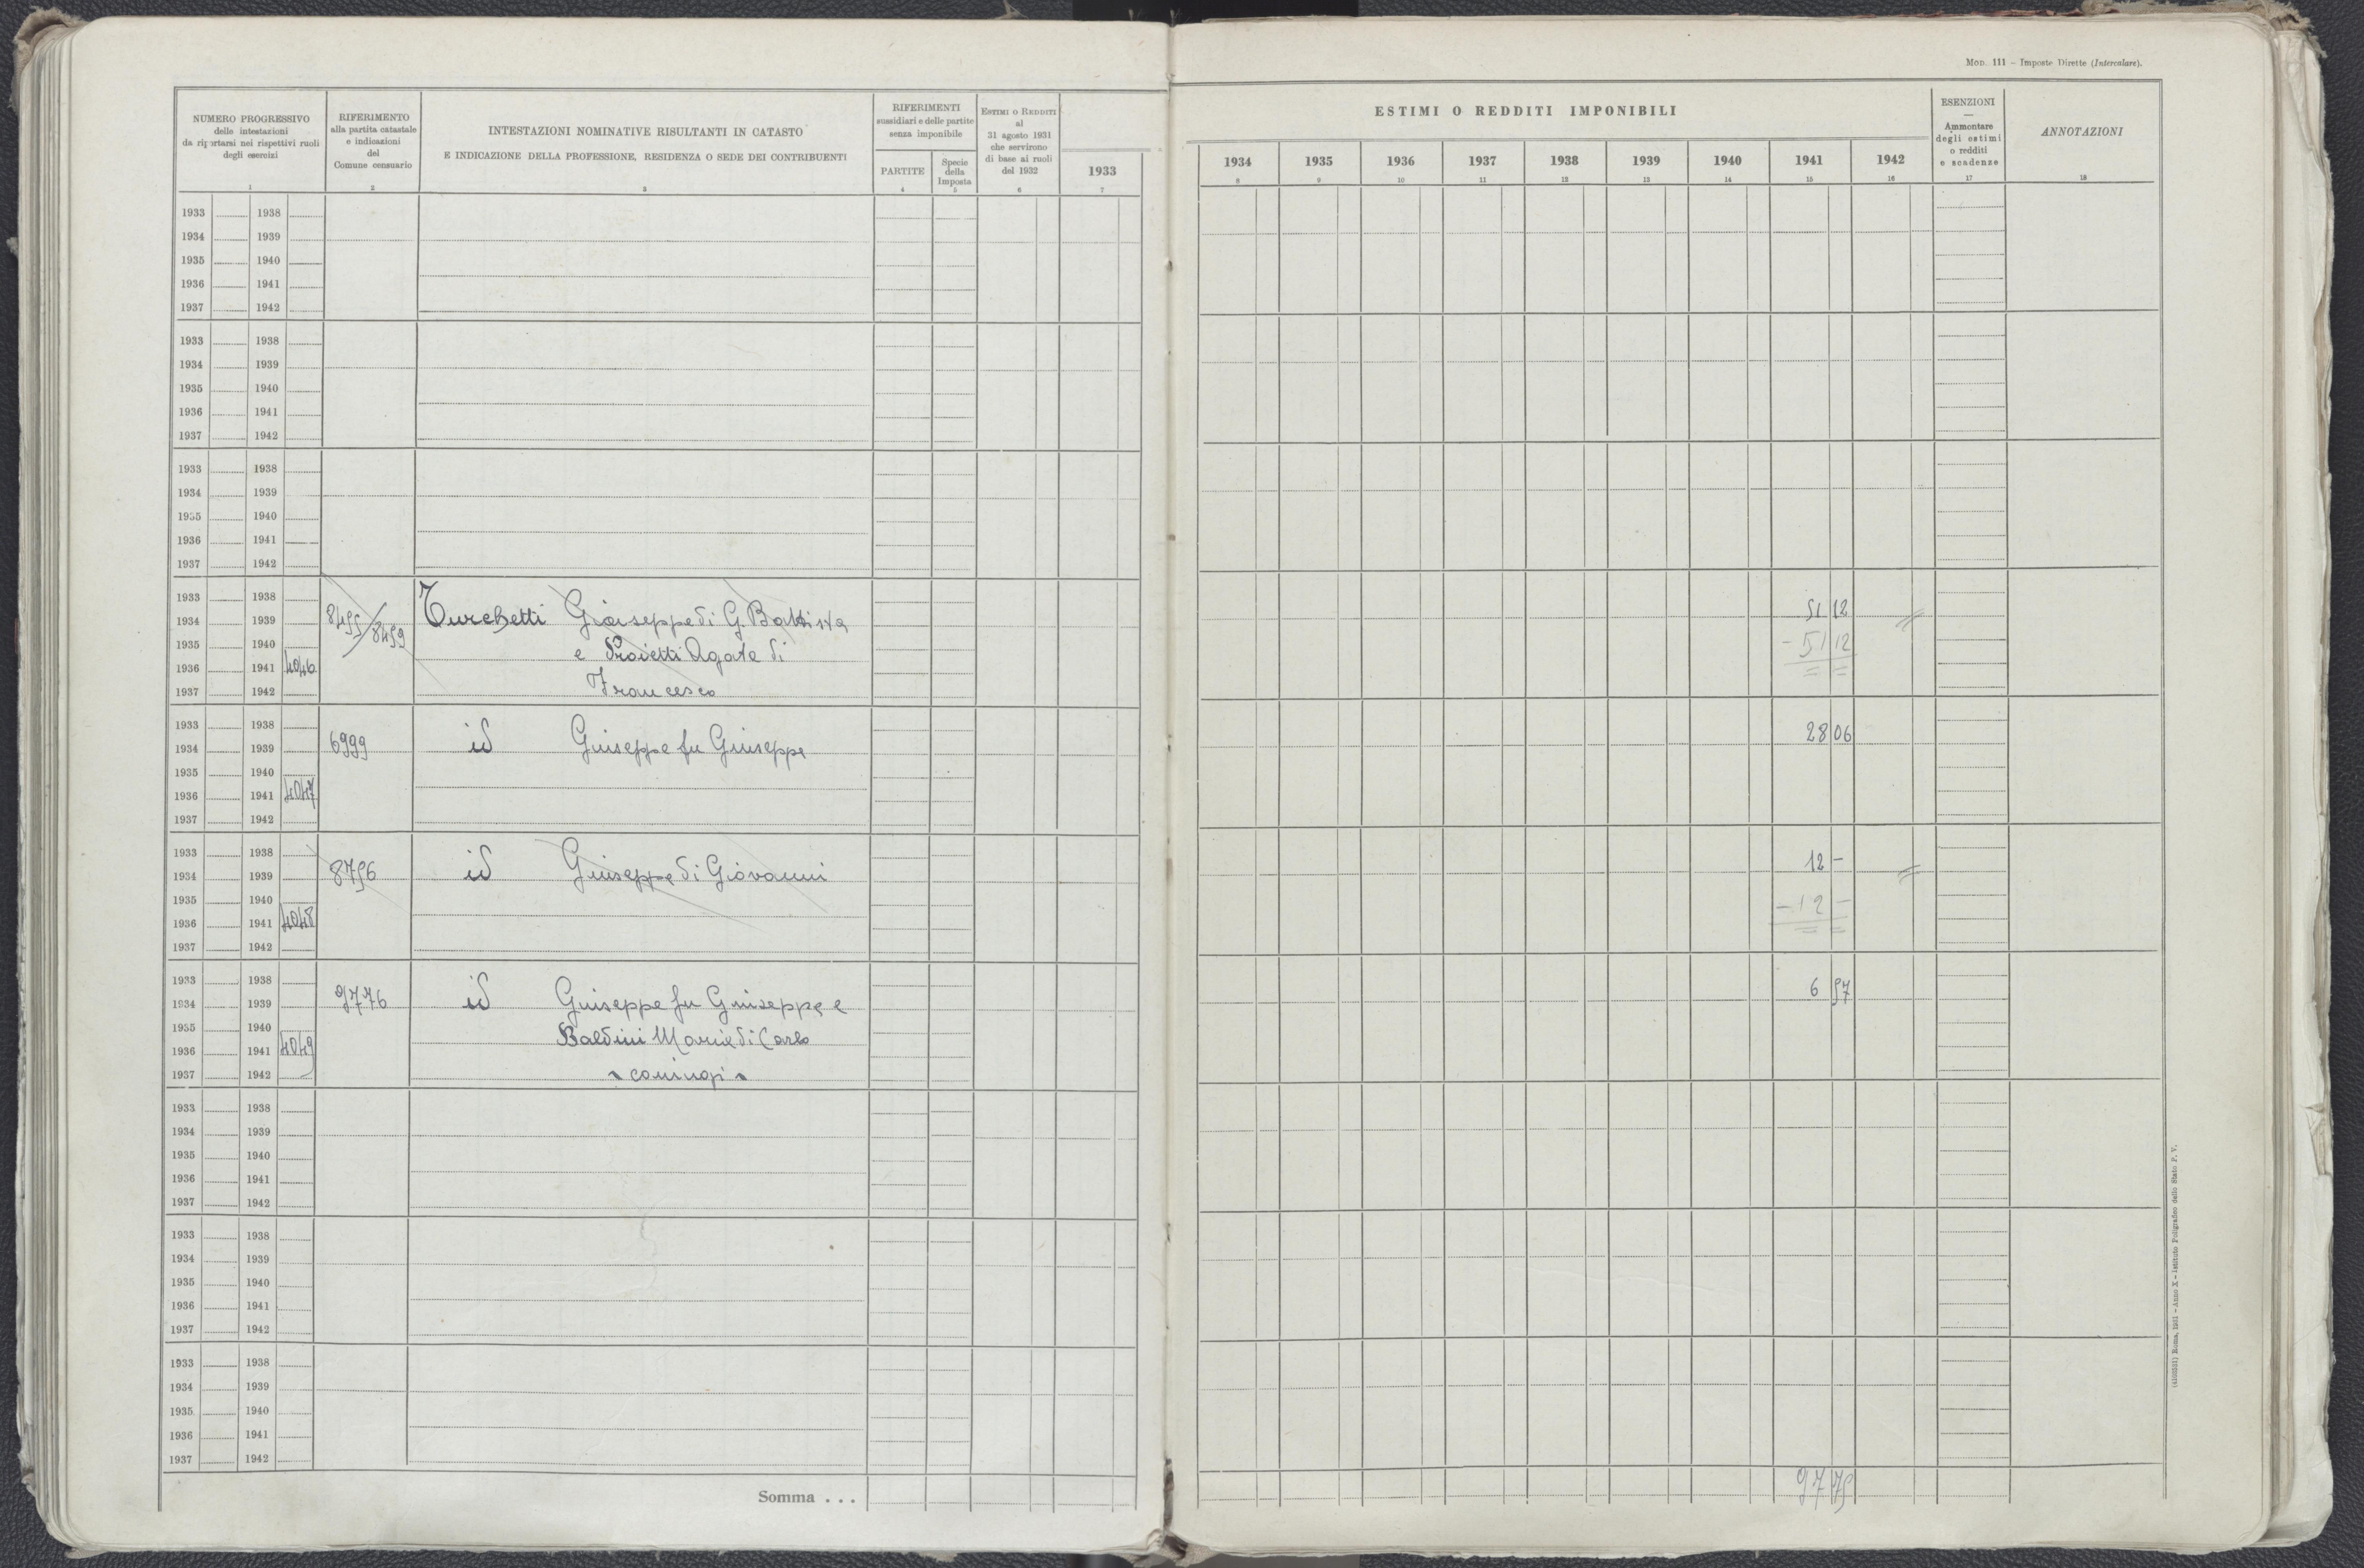 Mod. 111 – Imposte Dirette (Intercalare).
NUMERO PROGRESSIVO
delle intestazioni
da riportarsi nei rispettivi ruoli
degli esercizi
1
RIFERIMENTO
alla partita catastale
e indicazioni
del
Comune censuario
2
INTESTAZIONI NOMINATIVE RISULTANTI IN CATASTO
E INDICAZIONE DELLA PROFESSIONE, RESIDENZA O SEDE DEI CONTRIBUENTI
3
RIFERIMENTI
sussidiari e delle partite
senza imponibile
PARTITE
4
Specie
della
Imposta
5
Estimi o Redditi
al
31 agosto 1931
che servirono
di base ai ruoli
del 1932
6
1933
7
ESTIMI O REDDITI IMPONIBILI
1934 1935 1936 1937 1938 1939 1940 1941 1942
8 9 10 11 12 13 14 15 16
ESENZIONI
—
Ammontare
degli estimi
o redditi
e scadenze
17
ANNOTAZIONI
18
1933 1938
1934 1939
1935 1940
1936 1941
1937 1942
1933 1938
1934 1939
1935 1940
1936 1941
1937 1942
1933 1938
1934 1939
1935 1940
1936 1941
1937 1942
1933 1938
1934 1939 8455/8459 Turchetti Giuseppe di G. Battista 51 12
1935 1940 e Proietti Agata di - 51 12
1936 1941 4046
1937 1942 Francesco
1933 1938
1934 1939 6999 id Giuseppe fu Giuseppe 28 06
1935 1940
1936 1941 4047
1937 1942
1933 1938
1934 1939 8756 id Giuseppe di Giovanni 12 –
1935 1940 - 12 –
1936 1941 4048
1937 1942
1933 1938
1934 1939 9776 id Giuseppe fu Giuseppe e 6 57
1935 1940 Baldini Maria di Carlo
1936 1941 4049
1937 1942 coniugi
1933 1938
1934 1939
1935 1940
1936 1941
1937 1942
1933 1938
1934 1939
1935 1940
1936 1941
1937 1942
1933 1938
1934 1939
1935 1940
1936 1941
1937 1942
Somma . . . 97 75